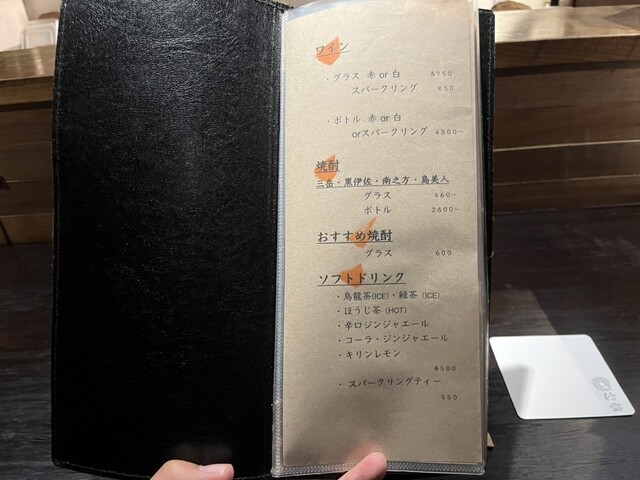 ワイン
・グラス 赤 or 白 各750
スパークリング 850
・ボトル 赤 or 白
orスパークリング 4500~
焼酎
三岳・黒伊佐・南之方・島美人
グラス 460~
ボトル 2600~
おすすめ焼酎
グラス 600
ソフトドリンク
・烏龍茶(ICE)・緑茶 (ICE)
・ほうじ茶 (HOT)
・辛口ジンジャエール
・コーラ・ジンジャエール
・キリンレモン
各500
・ スパークリングティー
550